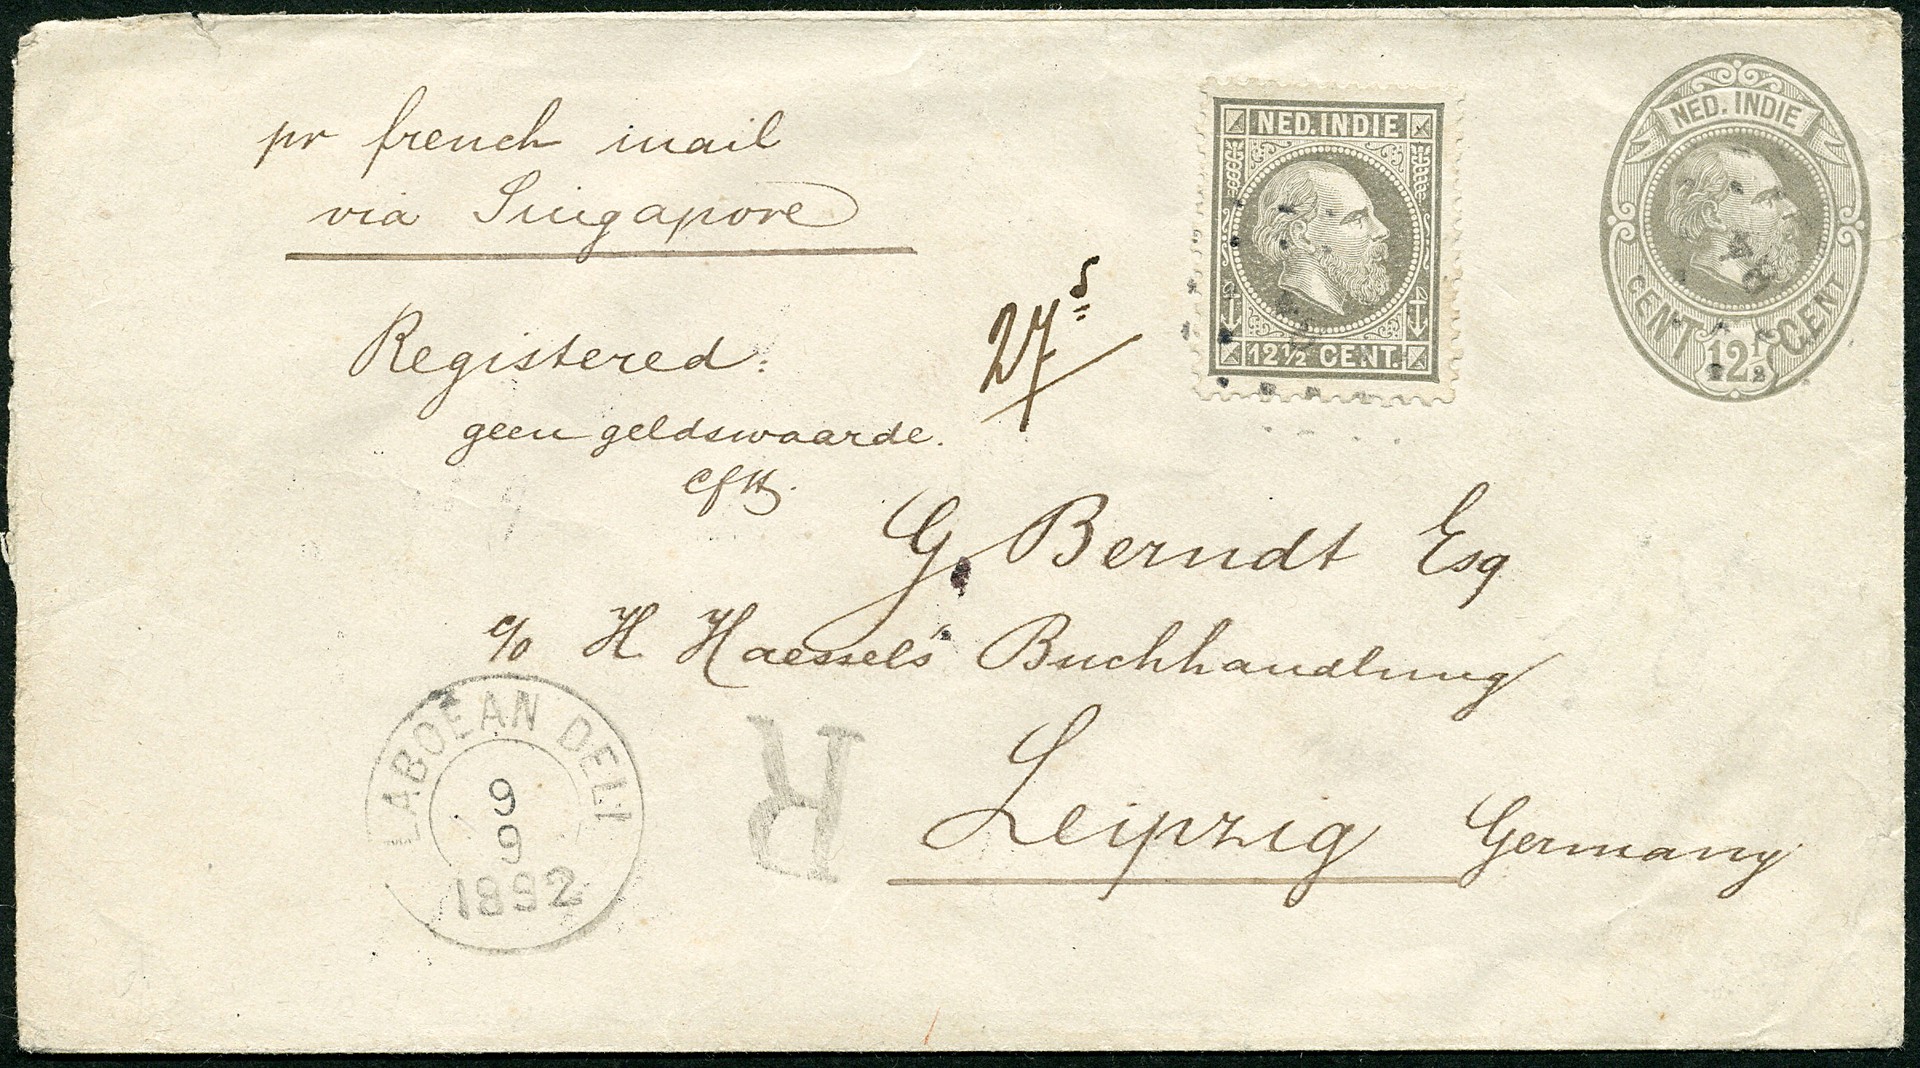 pr french mail
via Singapore
Registered:
geen geldswaarde.
27⁵
NED. INDIE
12½ CENT.
NED. INDIE
CENT 12½ CENT
G. Berndt Esq
c/o H Haessel's Buchhandlung
Leipzig Germany
LABOEAN DELI
9
9
1892
R